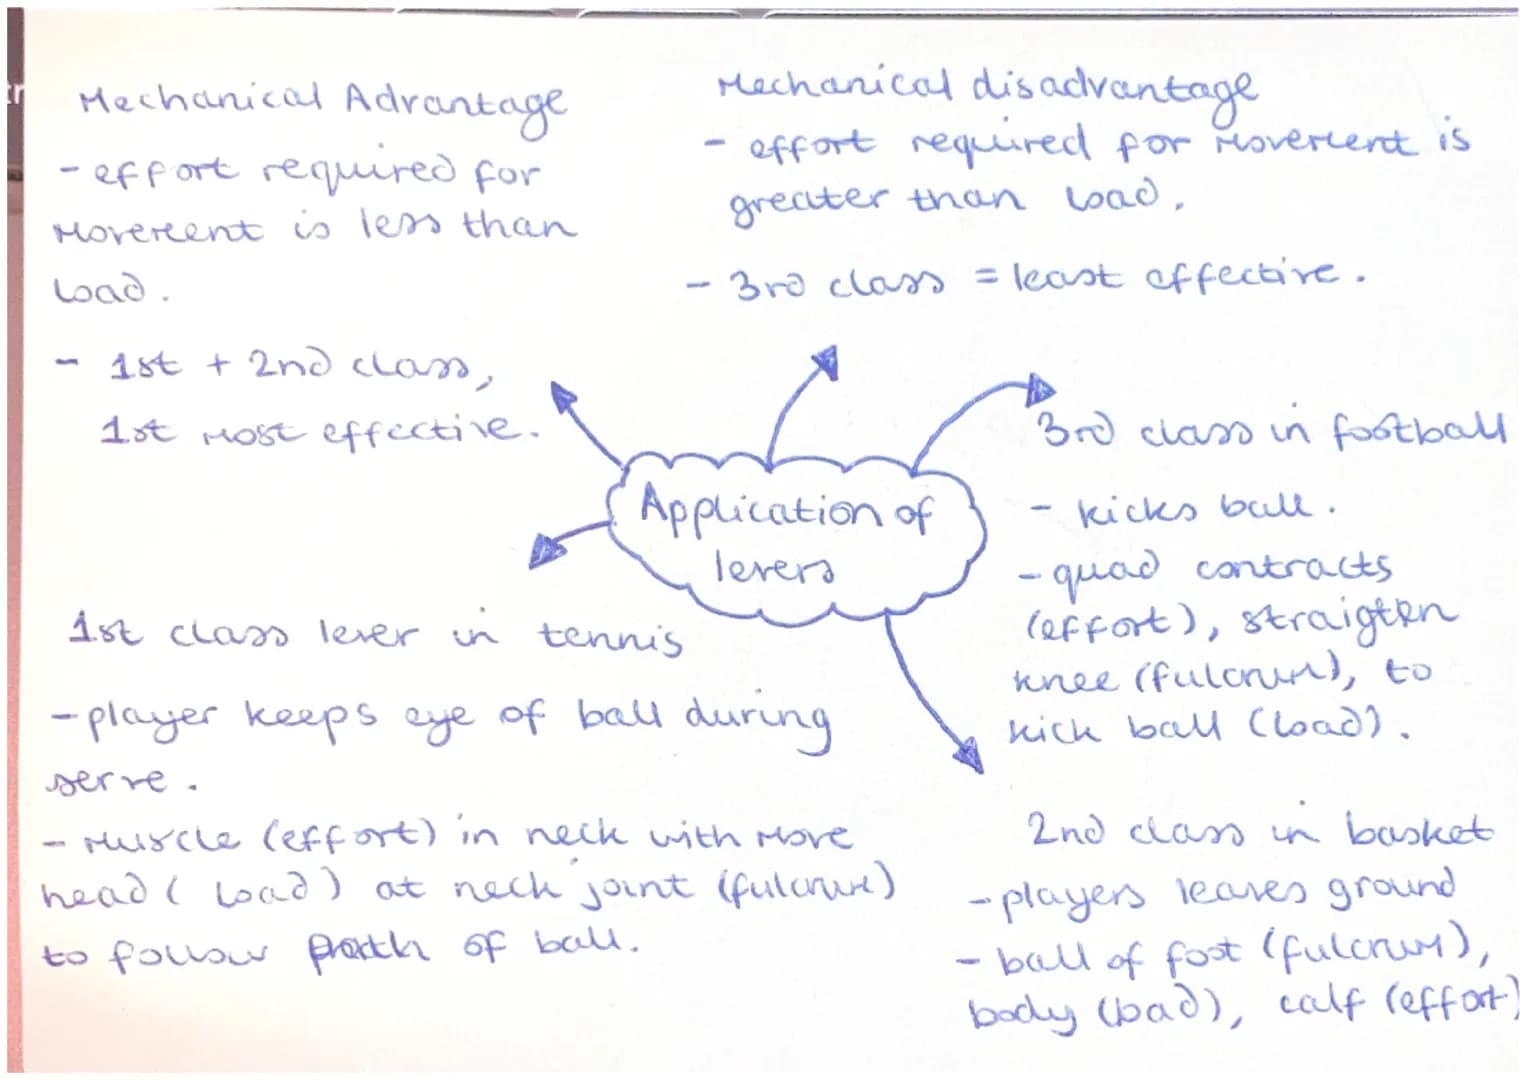 Mechanical Advantage
- effort required for
movement is less than
load.
- 1st + 2nd class,
1st most effective.
Mechanical disadvantage
- effort required for movement is
greater than load.
- 3rd class = least effective.
Application of
levers
3rd class in football
- kicks ball.
- quad contracts
(effort), straigten
knee (fulcrum), to
kick ball (load).
1st class lever in tennis
- player keeps eye of ball during
serve.
- muscle (effort) in neck with move
head ( load) at neck joint (fulcrum)
to follow path of ball.
2nd class in basket
- players leaves ground
- ball of foot (fulcrum),
body (load), calf (effort)